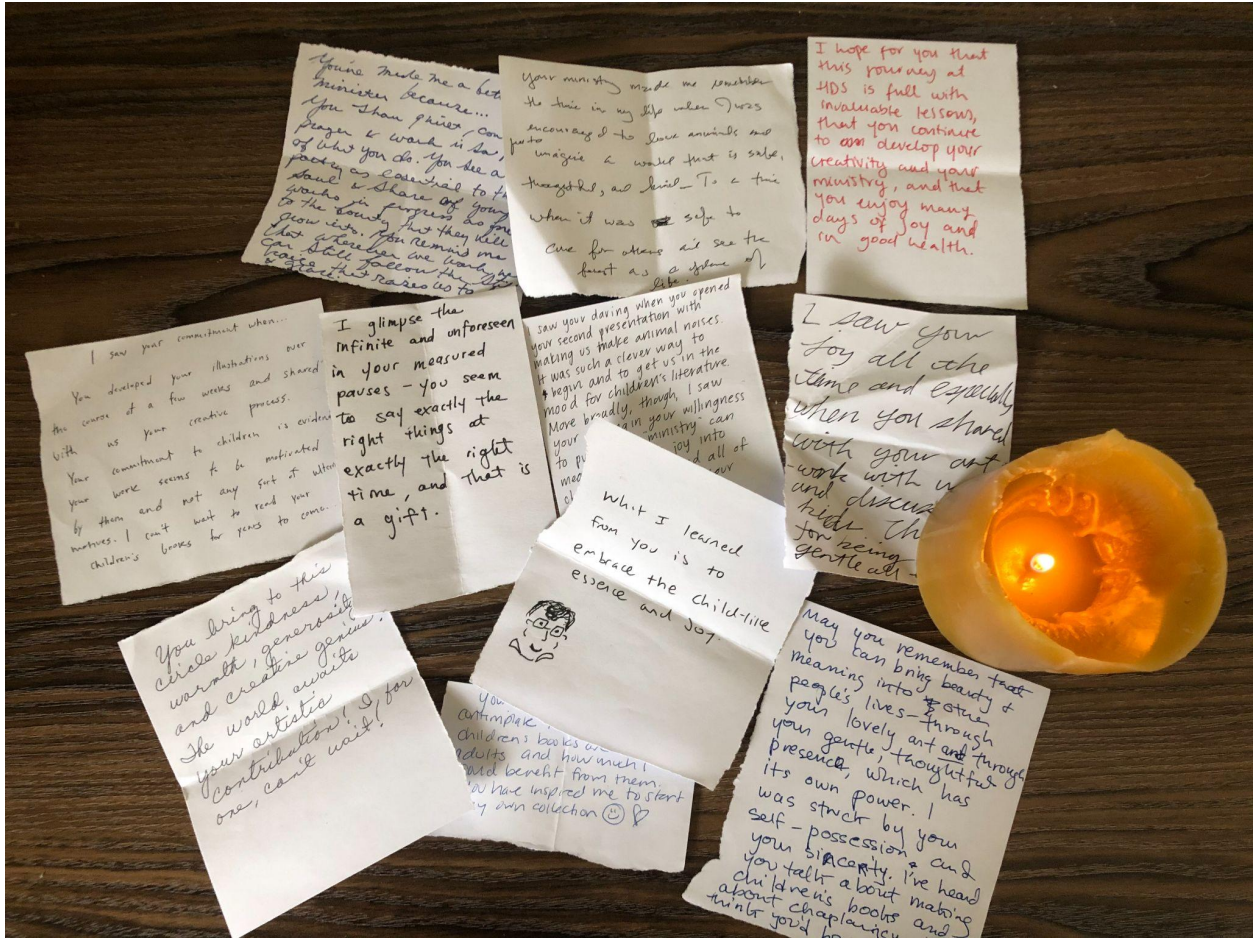 You've made me a bett
minister because...
You share quiet, con
prayer & work is so,
of what you do. You see a
poetry as essential to th
soul & share of your
works in progress as
to the bounty that they will
grow into. You remind me
that wherever we work, we
can still follow the
that raises us to
& grace.
Your ministry made me remember
the time in my life when I was
encouraged to love animals and
just to
imagine a world that is safe,
thoughtful, and kind – To a time
when it was safe to
care for others and see the
forest as a place of
life
I hope for you that
this journey at
HDS is full with
invaluable lessons,
that you continue
to develop your
creativity and your
ministry, and that
you enjoy many
days of joy and
in good health.
I saw your commitment when...
You developed your illustrations over
the course of a few weeks and shared
with us your creative process.
Your commitment to children is eviden
your work seems to be motivated
by them and not any sort of ulteri
motives. I can't wait to read your
children's books for years to come.
I glimpse the
infinite and unforeseen
in your measured
pauses – you seem
to say exactly the
right things at
exactly the right
time, and that is
a gift.
saw your daring when you opened
your second presentation with
making us make animal noises.
It was such a clever way to
begin and to get us in the
mood for children's literature.
More broadly, though, I saw
your in your willingness
to pu "ministry" can
mea joy into
d all of
our
I saw your
joy all the
time and especially
when you shared
with your art
-work with u
and discuss
kids. Th
for being
gentle all –
You bring to this
circle kindness,
warmth, generosit
and creative genius.
The world awaits
your artistic
contribution! I, for
one, can't wait!
What I learned
from you is to
embrace the child-like
essence and joy.
You
contimplate
children's books are
adults and how much I
could benefit from them.
You have inspired me to start
my own collection ☺ ♡
May you remember that
you can bring beauty &
meaning into other
people's lives – through
your lovely art and through
your gentle, thoughtful
presence, which has
its own power. I
was struck by your
self-possession and
your sincerity. I've heard
you talk about making
children's books and
about chaplaincy and
think you'd b